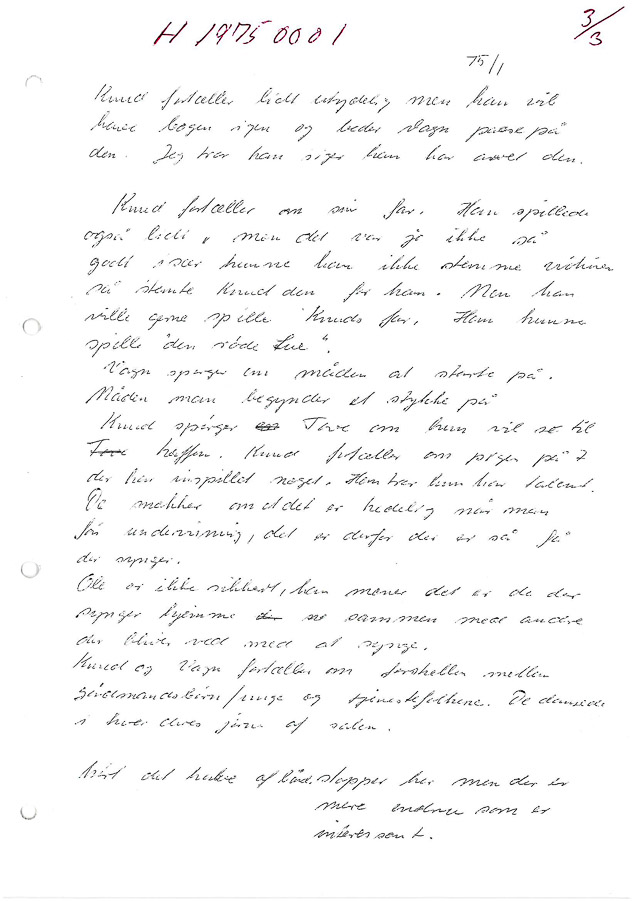 H 1975 0001
3/3
75/1
Knud fortæller lidt utydelig men han vil
have bogen igen og beder Vagn passe på
den. Jeg tror han siger han har arvet den.
Knud fortæller om sin far. Han spillede
også lidt, men det var jo ikke så
godt især kunne han ikke stemme violinen
så stemte Knud den for ham. Men han
ville gerne spille Knuds far. Han kunne
spille "den røde Lue".
Vagn spørger om måden at starte på.
Måden man begynder et stykke på
Knud spørger Tove om hun vil se til
kaffen. Knud fortæller om pigen på 7
der har indspillet noget. Han tror hun har talent.
De snakker om at det er kedelig når man
får undervisning, det er derfor der er så få
der synger.
Ole er ikke sikker, han mener det er da der
synger hjemme sammen med andre
der bliver ved med at synge.
Knud og Vagn fortæller om forskellen mellem
gårdmandsbørn/unge og tjenestefolkene. De dansede
i hver deres side af salen.
det halve af båd. stopper her men der er
mere endnu som er
interessant.